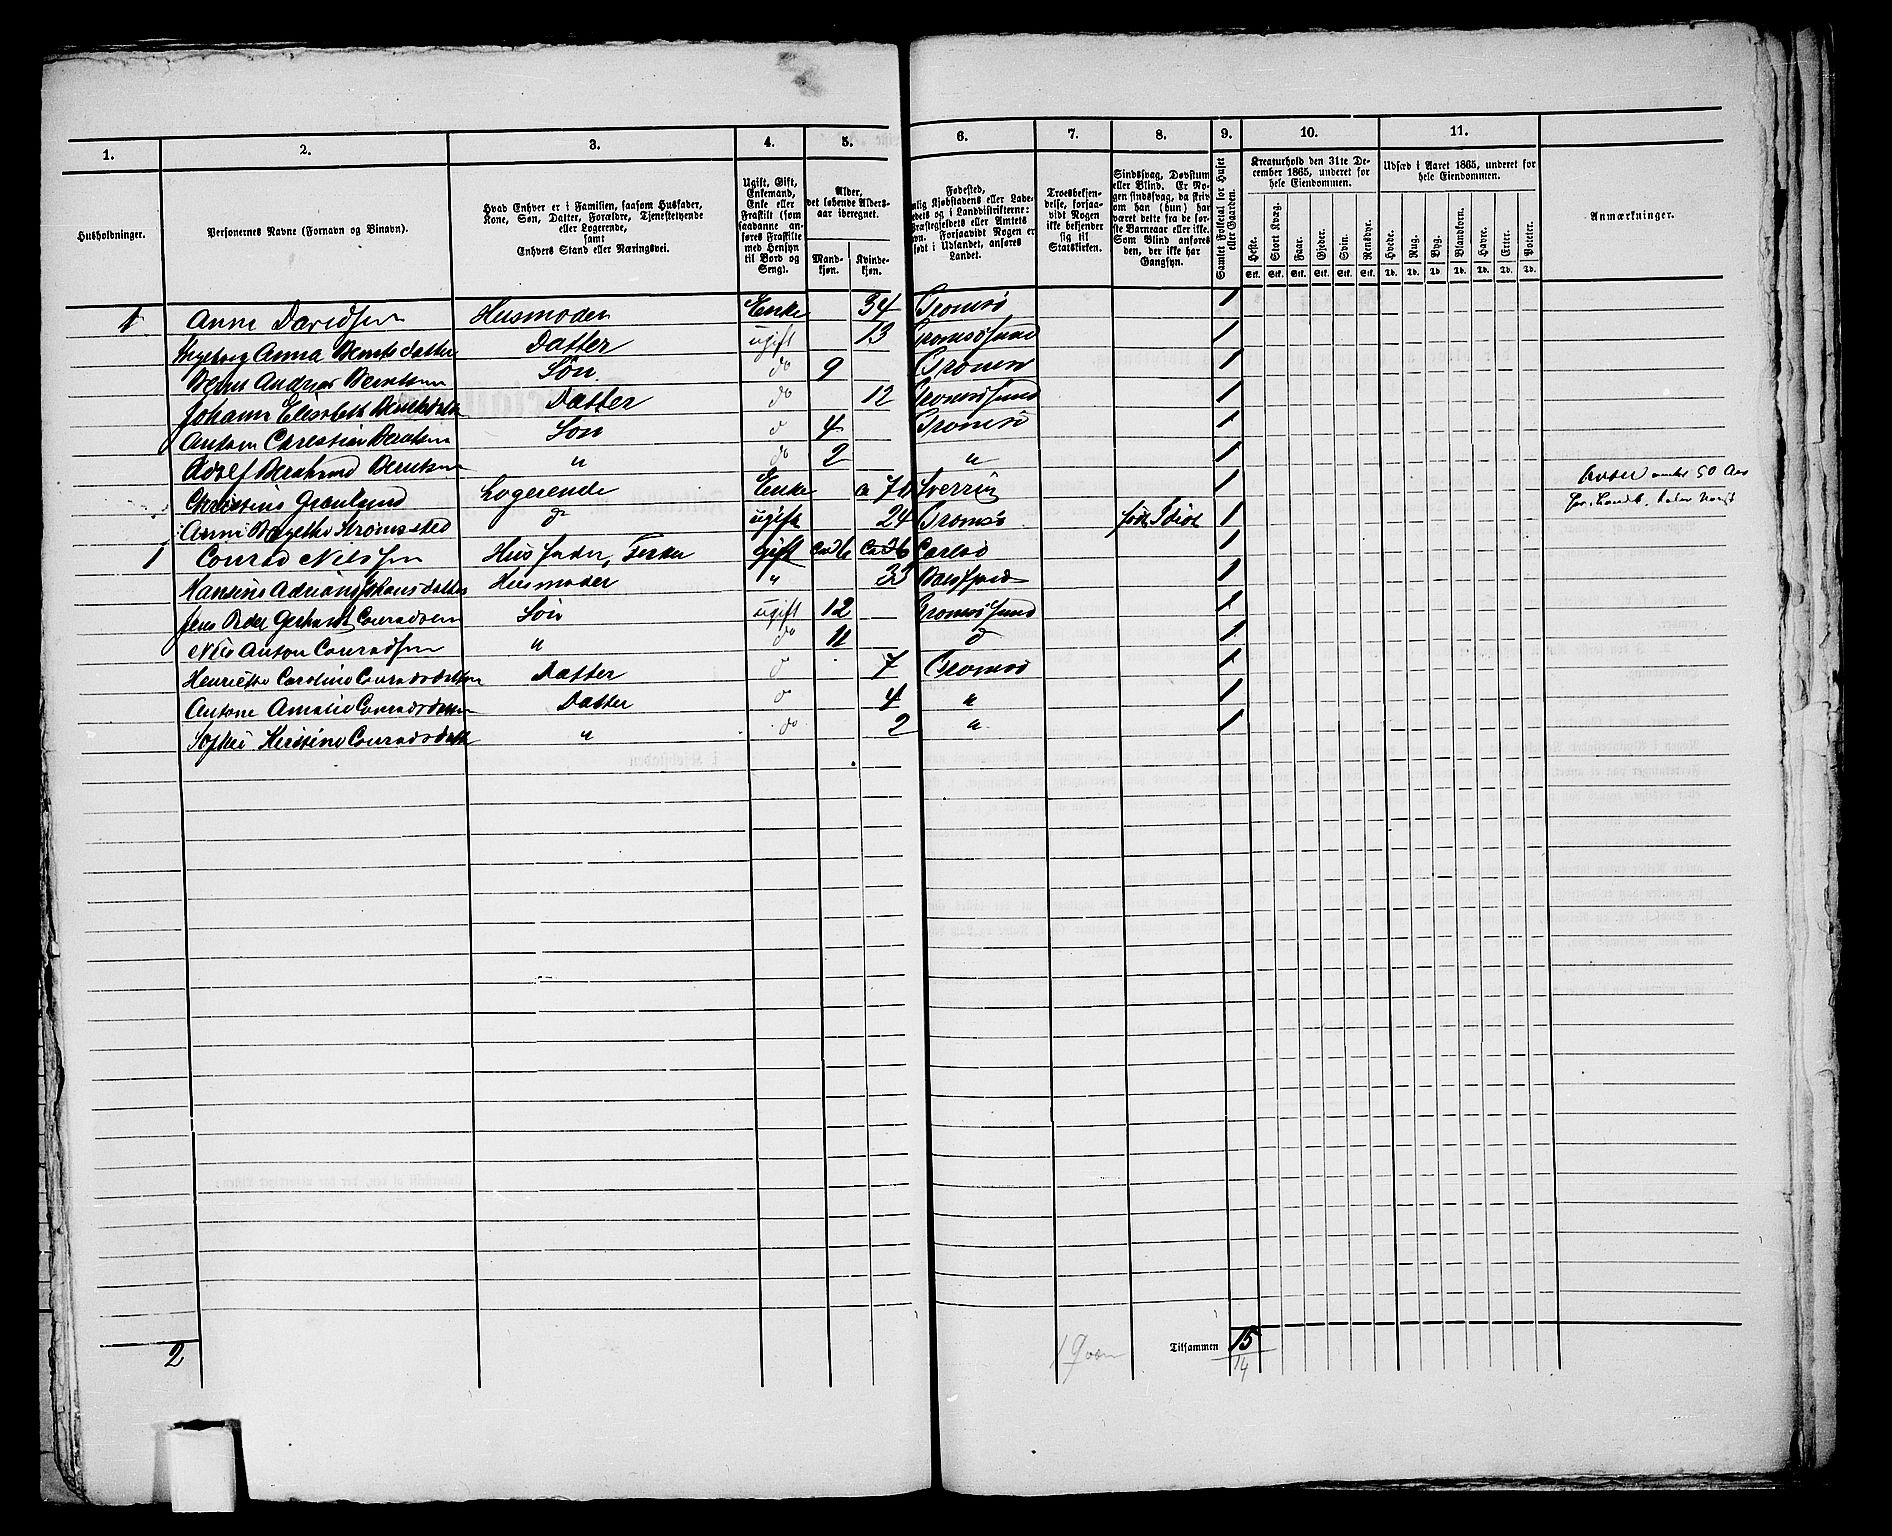 1. 2. 3. 4. 5. 6. 7. 8. 9. 10. 11.
Husholdninger.
Personernes Navne (Fornavn og Binavn).
Hvad Enhver er i Familien, saasom Husfader,
Kone, Søn, Datter, Forældre, Tjenestetyende
eller Logerende,
samt
Enhvers Stand eller Næringsvei.
Ugift, Gift,
Enkemand,
Enke eller
Fraskilt (som
saadanne an-
føres Fraskilte
med Hensyn
til Bord og
Seng).
Alder,
det løbende Alders-
aar iberegnet.
Mand-
kjøn.
Kvinde-
kjøn.
Fødested,
nlig Kjøbstadens eller Lade-
stedets og i Landdistrikterne:
Præstegjeldets eller Amtets
vn. Forsaavidt Nogen er
født i Udlandet, anføres
Landet.
Troesbekjen-
delse, forsaa-
vidt Nogen
ikke bekjender
sig til
Statskirken.
Sindssvag, Døvstum
eller Blind. Er No-
gen sindssvag, da skriv
om han (hun) har
været dette fra de før-
ste Barneaar eller ikke.
Som Blind anføres
den, der ikke har
Gangsyn.
Samlet Folketal for Huset
eller Gaarden.
Kreaturhold den 31te De-
cember 1865, underet for
hele Eiendommen.
Heste. Stort Kvæg. Faar. Gjeder. Svin. Rensdyr.
Stk. Stk. Stk. Stk. Stk. Stk.
Udsæd i Aaret 1865, underet for
hele Eiendommen.
Hvede. Rug. Byg. Blandkorn. Havre. Erter. Poteter.
Td. Td. Td. Td. Td. Td. Td.
Anmærkninger.
1 Anne Davidsen Husmoder Enke 34 Tromsø 1
Ingeborg Anna Berntsdatter Datter ugift 13 Tromsøsund 1
Bernt Andreas Berntsen Søn do 9 Tromsø 1
Johanne Elisabeth Berntsdatter Datter do 12 Tromsøsund 1
Anton Christian Berntsen Søn d 4 Tromsø 1
Adolf Bernhard Berntsen " do 2 " 1
Christine Grønlund Logerende Enke ca 70 Sverrig 1
Anne Margrethe Strømsted d ugift 24 Tromsø født Idiot 1
1 Conrad Nilssen Husfader, Fisker gift Ca 36 Ca 36 Carlsø 1
Hansine Adriane Johansdatter Husmoder " 33 Balsfjord 1
Jens Peder Gerhardt Conradsen Søn ugift 12 Tromsøsund 1
Nils Anton Conradsen " do 11 d 1
Henriette Caroline Conradsdatter Datter d 7 Tromsø 1
Antone Amalie Conradsdatter Datter d 4 " 1
Sophie Kristine Conradsdatter " do 2 " 1
50 Aar
2
Tilsammen 15
14